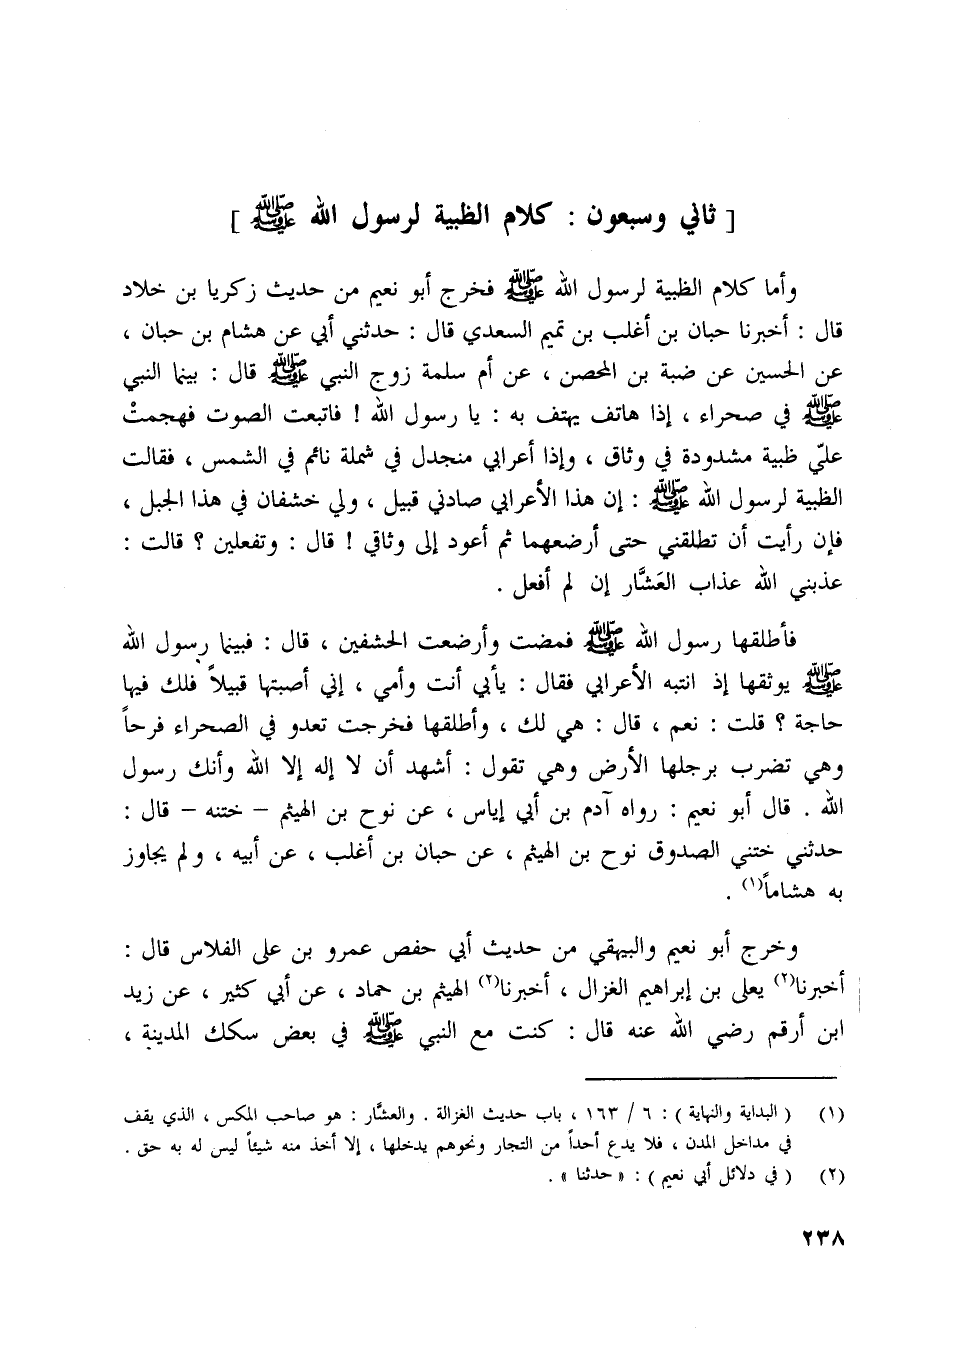 [ ثاني وسبعون : كلام الظبية لرسول الله ﷺ ]
وأما كلام الظبية لرسول الله ﷺ فخرج أبو نعيم من حديث زكريا بن خلاد
قال : أخبرنا حبان بن أغلب بن تميم السعدي قال : حدثني أبي عن هشام بن حبان ،
عن الحسين عن ضبة بن المحصن ، عن أم سلمة زوج النبي ﷺ قال : بينما النبي
ﷺ في صحراء ، إذا هاتف يهتف به : يا رسول الله ! فاتبعت الصوت فهجمتْ
عليّ ظبية مشدودة في وثاق ، وإذا أعرابي منجدل في شملة نائم في الشمس ، فقالت
الظبية لرسول الله ﷺ : إن هذا الأعرابي صادني قبيل ، ولي خشفان في هذا الجبل ،
فإن رأيت أن تطلقني حتى أرضعهما ثم أعود إلى وثاقي ! قال : وتفعلين ؟ قالت :
عذبني الله عذاب العَشَّار إن لم أفعل .
فأطلقها رسول الله ﷺ فمضت وأرضعت الخشفين ، قال : فبينما رسول الله
ﷺ يوثقها إذ انتبه الأعرابي فقال : يأبي أنت وأمي ، إني أصبتها قبيلاً فلك فيها
حاجة ؟ قلت : نعم ، قال : هي لك ، وأطلقها فخرجت تعدو في الصحراء فرحاً
وهي تضرب برجلها الأرض وهي تقول : أشهد أن لا إله إلا الله وأنك رسول
الله . قال أبو نعيم : رواه آدم بن أبي إياس ، عن نوح بن الهيثم – ختنه – قال :
حدثني ختني الصدوق نوح بن الهيثم ، عن حبان بن أغلب ، عن أبيه ، ولم يجاوز
به هشاماً(١) .
وخرج أبو نعيم والبيهقي من حديث أبي حفص عمرو بن على الفلاس قال :
أخبرنا(٢) يعلى بن إبراهيم الغزال ، أخبرنا(٢) الهيثم بن حماد ، عن أبي كثير ، عن زيد
ابن أرقم رضي الله عنه قال : كنت مع النبي ﷺ في بعض سكك المدينة ،
(١) ( البداية والنهاية ) : ٦ / ١٦٣ ، باب حديث الغزالة . والعشَّار : هو صاحب المكس ، الذي يقف
في مداخل المدن ، فلا يدع أحداً من التجار ونحوهم يدخلها ، إلا أخذ منه شيئاً ليس له به حق .
(٢) ( في دلائل أبي نعيم ) : « حدثنا » .
٢٣٨